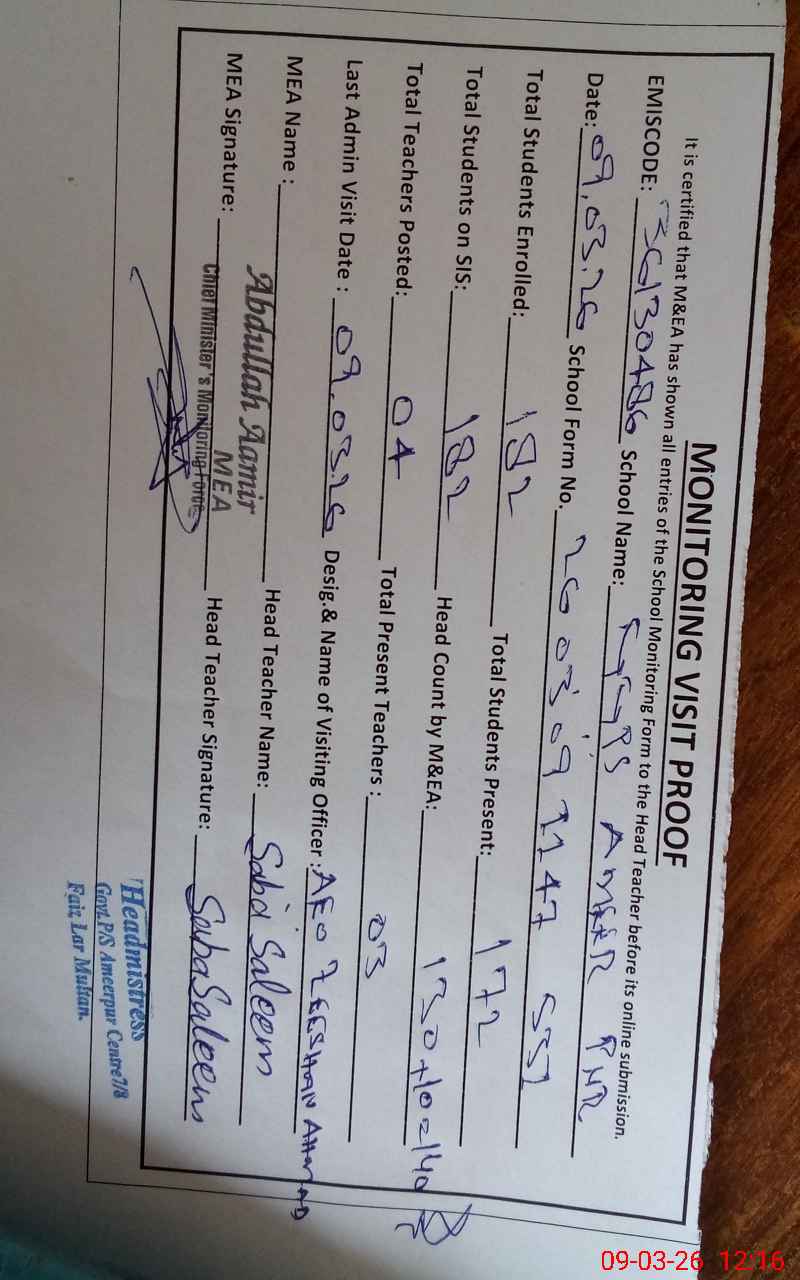 MONITORING VISIT PROOF
It is certified that M&EA has shown all entries of the School Monitoring Form to the Head Teacher before its online submission.
EMISCODE: 36130486 School Name: P/S AMEER PUR
Date: 09.03.26 School Form No. 26 03 09 1147 551
Total Students Enrolled: 182 Total Students Present: 172
Total Students on SIS: 182 Head Count by M&EA: 130+10=140
Total Teachers Posted: 04 Total Present Teachers : 03
Last Admin Visit Date : 09.03.26 Desig.& Name of Visiting Officer : AEO ZEESHAN AHMAD
MEA Name : Abdullah Aamir Head Teacher Name: Saba Saleem
MEA
Chief Minister's Monitoring Force
MEA Signature: Head Teacher Signature: Saba Saleem
Headmistress
Govt.P/S Ameerpur Centre 7/8
Faiz, Lar Multan.
09-03-26 12:16